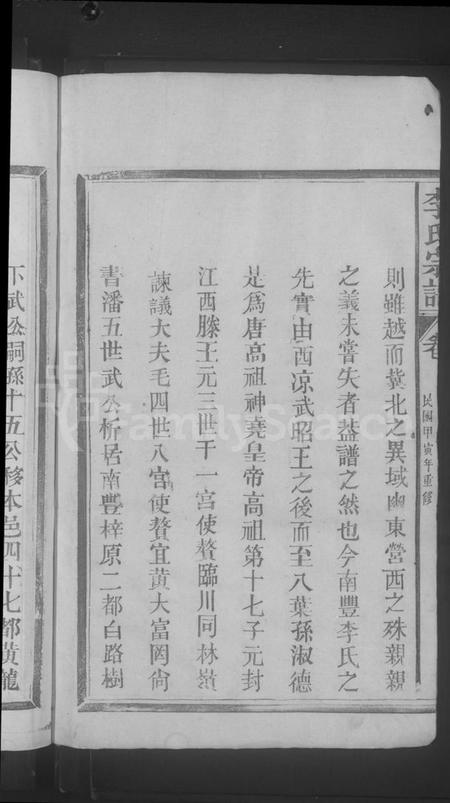 李氏宗譜
卷
民國甲寅年重修
則雖越而冀北之異域幽東營西之殊親親
之義未嘗失者益譜之然也今南豐李氏之
先實由西凉武昭王之後而至八葉孫淑德
是爲唐高祖神堯皇帝高祖第十七子元封
江西滕王元三世干一宮使贅臨川同林嶺
諫議大夫毛四世八宮使贅宜黄大富岡尙
書潘五世武公析居南豐梓原二都白路樹
下武公嗣孫十五公移本邑四十七都黄龍
FamilySearch